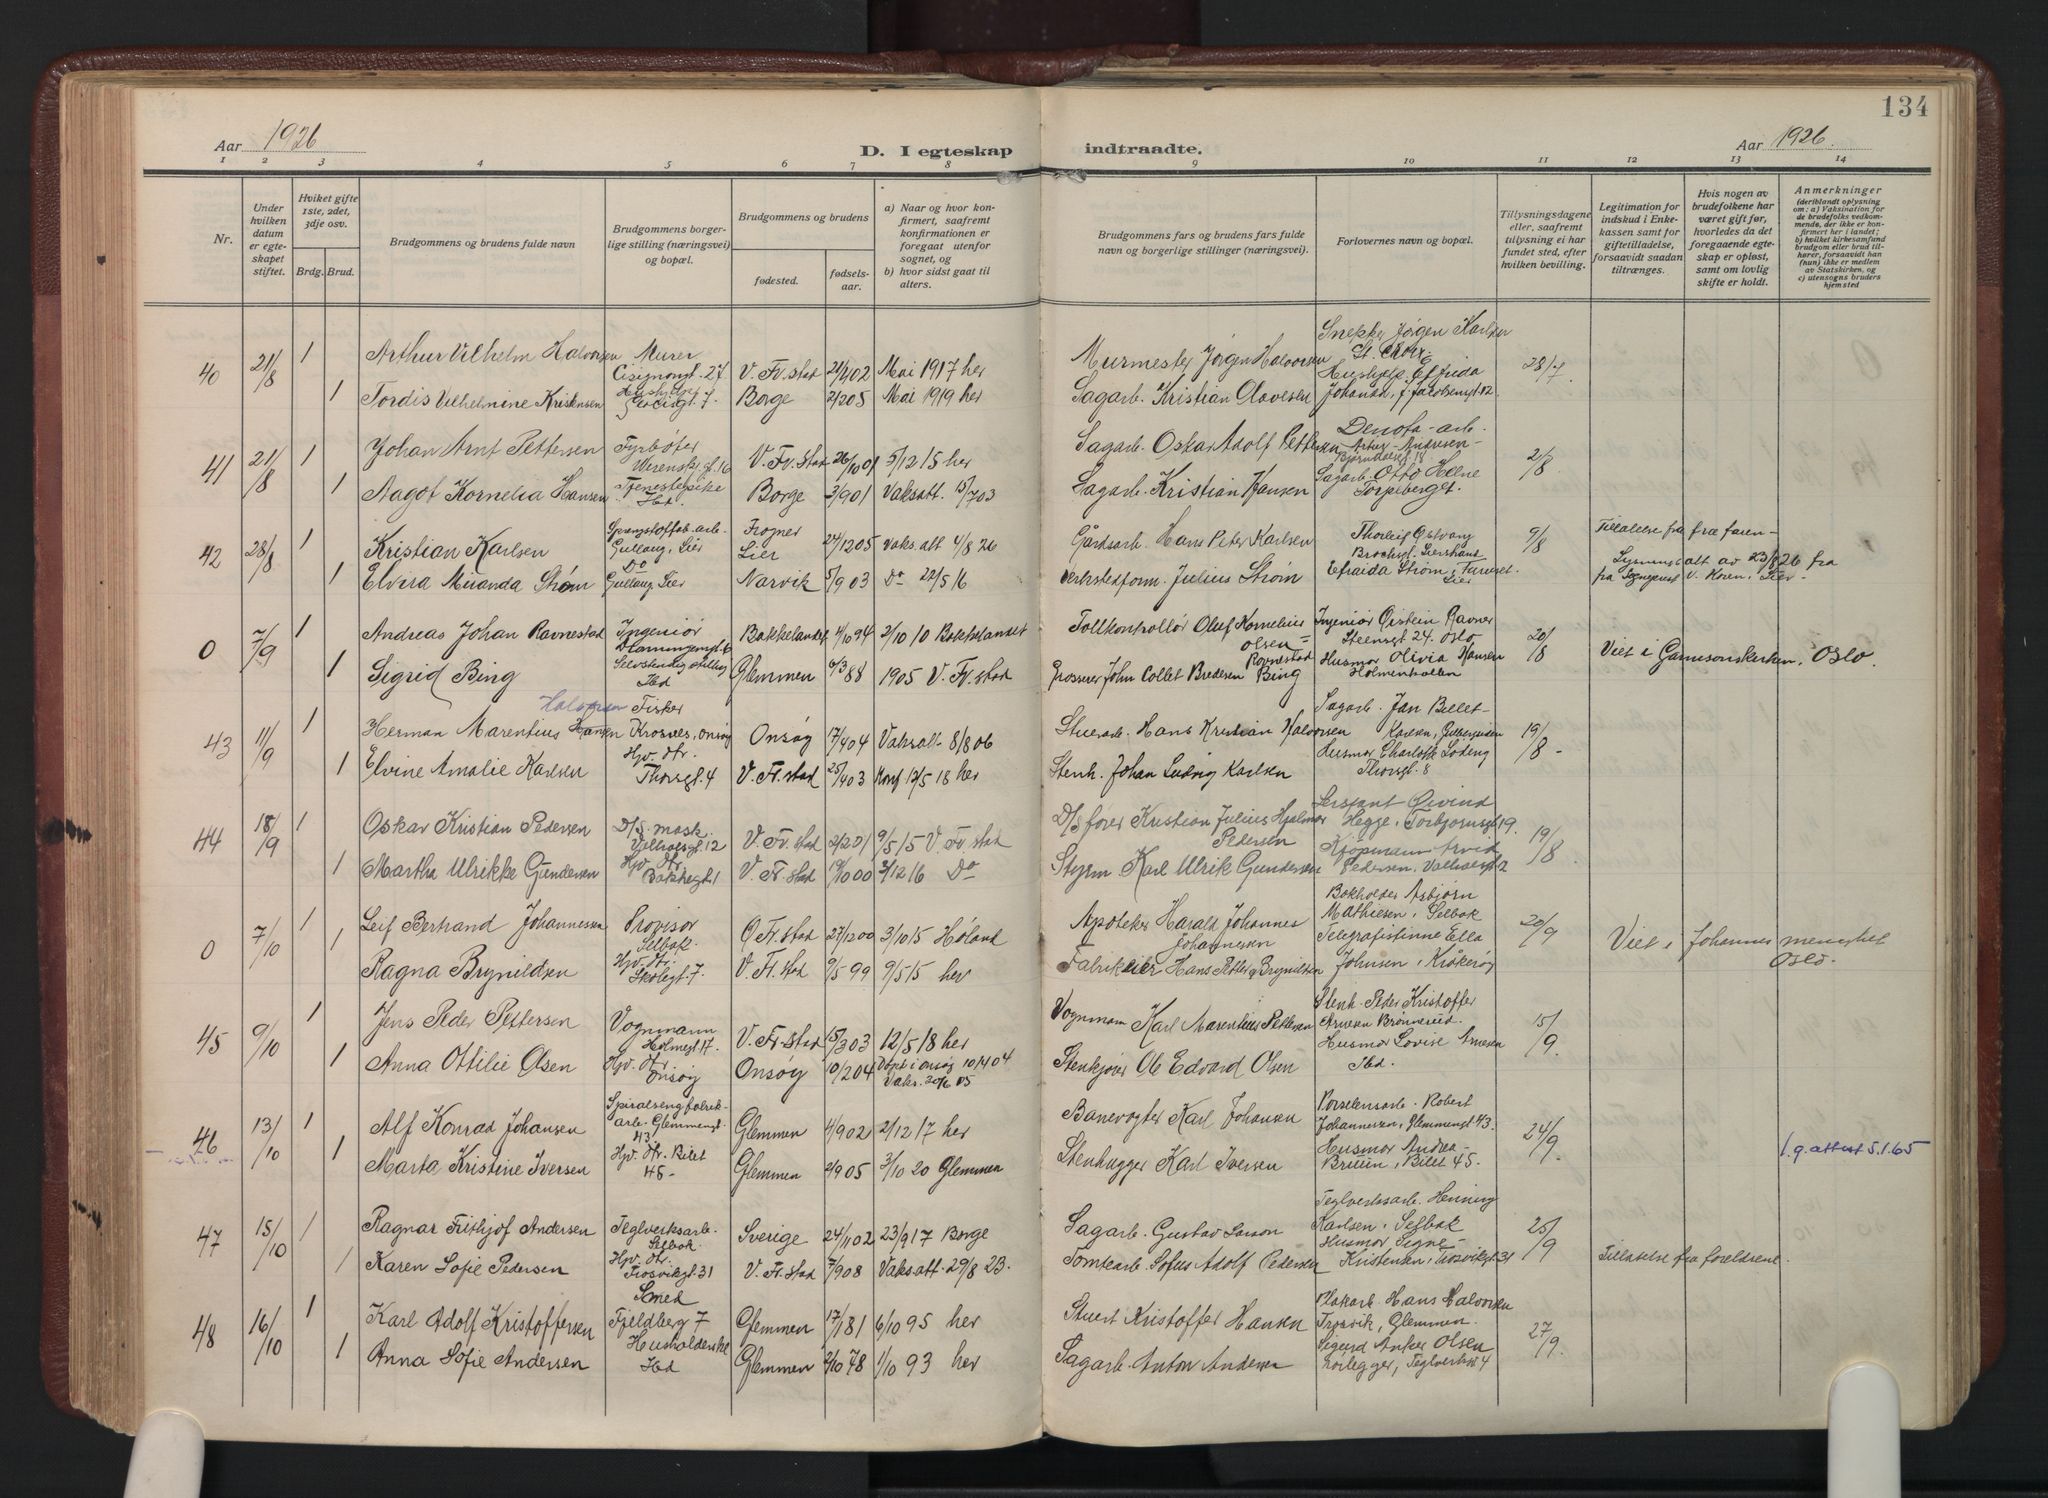 134
Aar 1926
D. I egteskap indtraadte.
Aar 1926.
1 2 3 4 5 6 7 8 9 10 11 12 13 14
Nr.
Under hvilken datum er egteskapet stiftet.
Hviket gifte 1ste, 2det, 3dje osv.
Brdg. Brud.
Brudgommens og brudens fulde navn
Brudgommens borgerlige stilling (næringsvei) og bopæl.
Brudgommens og brudens
fødested.
fødselsaar.
a) Naar og hvor konfirmert, saafremt konfirmationen er foregaat utenfor sognet, og
b) hvor sidst gaat til alters.
Brudgommens fars og brudens fars fulde navn og borgerlige stillinger (næringsvei).
Forlovernes navn og bopæl.
Tillysningsdagene eller, saafremt tillysning ei har fundet sted, efter hvilken bevilling.
Legitimation for indskud i Enkekassen samt for giftetilladelse, forsaavidt saadan tiltrænges.
Hvis nogen av brudefolkene har været gift før, hvorledes da det foregaaende egteskap er opløst, samt om lovlig skifte er holdt.
Anmerkninger (deriblandt oplysning om: a) Vaksination for de brudefolks vedkommende, der ikke er konfirmert her i landet; b) hvilket kirkesamfund brudgom eller brud tilhører, forsaavidt han (hun) ikke er medlem av Statskirken, og c) utensogns bruders hjemsted
40 21/8 1 Arthur Vilhelm Halvorsen Murer Cisignongt. 27 V. Fr.stad 21/4 02 Mai 1917 her Murmester Jørgen Halvorsen Snekker Jørgen Karlsen 28/7.
1 Tordis Vilhelmine Kristensen Borge 2/2 05 Mai 1919 her Sagarb. Kristian Olavesen Hushjelp Elfrida Johansen, J. Jacobsensgt 12.
41 21/8 1 Johan Arnt Pettersen Fyrbøter Werenskj.gt. 16 V. Fr.stad 26/10 01 5/12 15 her Sagarb. Oskar Adolf Pettersen Denofa-arb. Artur Andresen Bjørndalsgt 18 2/8
1 Aagot Kornelia Hansen Tjenestepike Ibd. Borge 3/9 01 Vaksatt. 15/7 03 Sagarb. Kristian Hansen Sagarb. Otto Helne Torpeberget.
42 28/8 1 Kristian Karlsen Sprengstoffab. arb. Gullaug, Lier Frogner Lier 24/12 05 Vaks. att 4/8 26 Gårdsarb. Hans Peter Karlsen Thorleif Østvang 9/8 Tillatelse fra fra faren-
1 Elvira Miranda Strøm Do Gullaug, Lier Narvik 5/9 03 Do 22/5 16 Verkstedform. Julius Strøm Efraida Strøm, Lier Lysningsatt av 23/8 26 fra fra Sogneprest V. Koren, Lier-
0 7/9 1 Andreas Johan Ravnestad Ingeniør Bakkelandet 4/10 94 2/10 10 Bakkelandet Tollkontrollør Oluf Kornelius Olsen = Ravnestad Ingeniør Øistein Ravner Steensgt 24. Oslo 20/8 Viet i Garnisonskirken, Oslo.
1 Sigrid Bing Selvstendig stilling Ibd Glemmen 6/3 88 1905 V. Fr.stad Grosserer John Collet Bredesen Bing Husmor Olivia Hansen Holmenkollen
43 11/9 1 Herman Marentius Hansen Halvorsen Fisker Krosnes, Onsøy Onsøy 17/4 04 Vaksatt 8/8 06 Stuerarb. Hans Kristian Halvorsen Sagarb. Jan Billet- Karlsen, 19/8 -
1 Elvine Amalie Karlsen Hjv. dtr. Thorsgt. 4 V. Fr.stad 25/4 03 Konf 12/5 18 her Stenh. Johan Ludvig Karlsen Husmor Charlotte Løding Thorsgt. 8
44 18/9 1 Oskar Kristian Pedersen D/S. mask. 12 V. Fr.stad 2/2 01 9/5 15 V. Fr.stad D/S fører Kristian Julius Hjalmar Pedersen Sersjant Øivind Hegge, Torbjørnsgt 19. 19/8
1 Martha Ulrikke Gundersen Hjv. dtr. Bakkegt. 1 V. Fr.stad 19/10 00 3/12 16 Do Styrm. Karl Ulrik Gundersen Kjøpmann Arvid Pedersen.
0 7/10 1 Leif Bertrand Johannessen Provisor Selbak. Ø Fr.stad 27/12 00 3/10 15 Høland Apoteker Harald Johannes Johannessen Bokholder Asbjørn Mathiesen, Selbak 20/9 Viet i Johannes menighet Oslo.
1 Ragna Brynildsen Hjv. dtr. Skolegt. 7 V. Fr.stad 9/5 99 9/5 15 her Fabrikeier Hans Petter Brynildsen Telegrafistinne Ella Johnsen, Kråkerøy
45 9/10 1 Jens Peder Pettersen Vognmann Holmegt 17. V. Fr.stad 15/3 03 12/5 18 her Vognmann Karl Marentius Pettersen Stenh. Peder Kristoffer Arnesen Brønnerød. 15/9
1 Anna Ottilie Olsen Hjv. dtr. Onsøy Onsøy 10/2 04 Døpt i Onsøy 10/4 04 Vaks. 20/6 05 Stenkjører Ole Edvard Olsen Husmor Lovise Arnesen Ibd.
46 13/10 1 Alf Konrad Johansen Spiralsengfabrik-arb. Glemmengt. 43 Glemmen 4/9 02 2/12 17 her Banevogter Karl Johansen Porselensarb. Robert Johannessen, Glemmengt. 43. 24/9. f.g. attest 5.1.65
1 Marta Kristine Iversen Hjv. dtr. Bilet 45- Glemmen 2/9 05 3/10 20 Glemmen Stenhugger Karl Iversen Husmor Andrea Bruun, Bilet 45.
47 15/10 1 Ragnar Frithjof Andersen Teglverksarb. Selbak. Sverige 24/11 02 23/9 17 Borge Sagarb. Gustav Larson Teglverksarb. Henning Karlsen, Selbak 25/9
1 Karen Sofie Pedersen Hjv. dtr. Trosvikgt. 31 V. Fr.stad 7/9 08 Vaksatt. 29/8 23. Tomtearb. Sofus Adolf Pedersen Husmor Signe Kristensen, Trosvikgt. 31 Tillatelse fra foreldrene.
48 16/10 1 Karl Adolf Kristoffersen Smed Fjeldberg 7 Glemmen 17/1 81 6/10 95 her Stuert Kristoffer Hansen Plakarb. Hans Halvorsen Trosvik, Glemmen. 27/9.
1 Anna Sofie Andersen Husholderske Ibd Glemmen 2/10 78 1/10 93 her Sagarb. Anton Andersen Sigurd Anker Olsen Rørlegger, Teglverksv 4